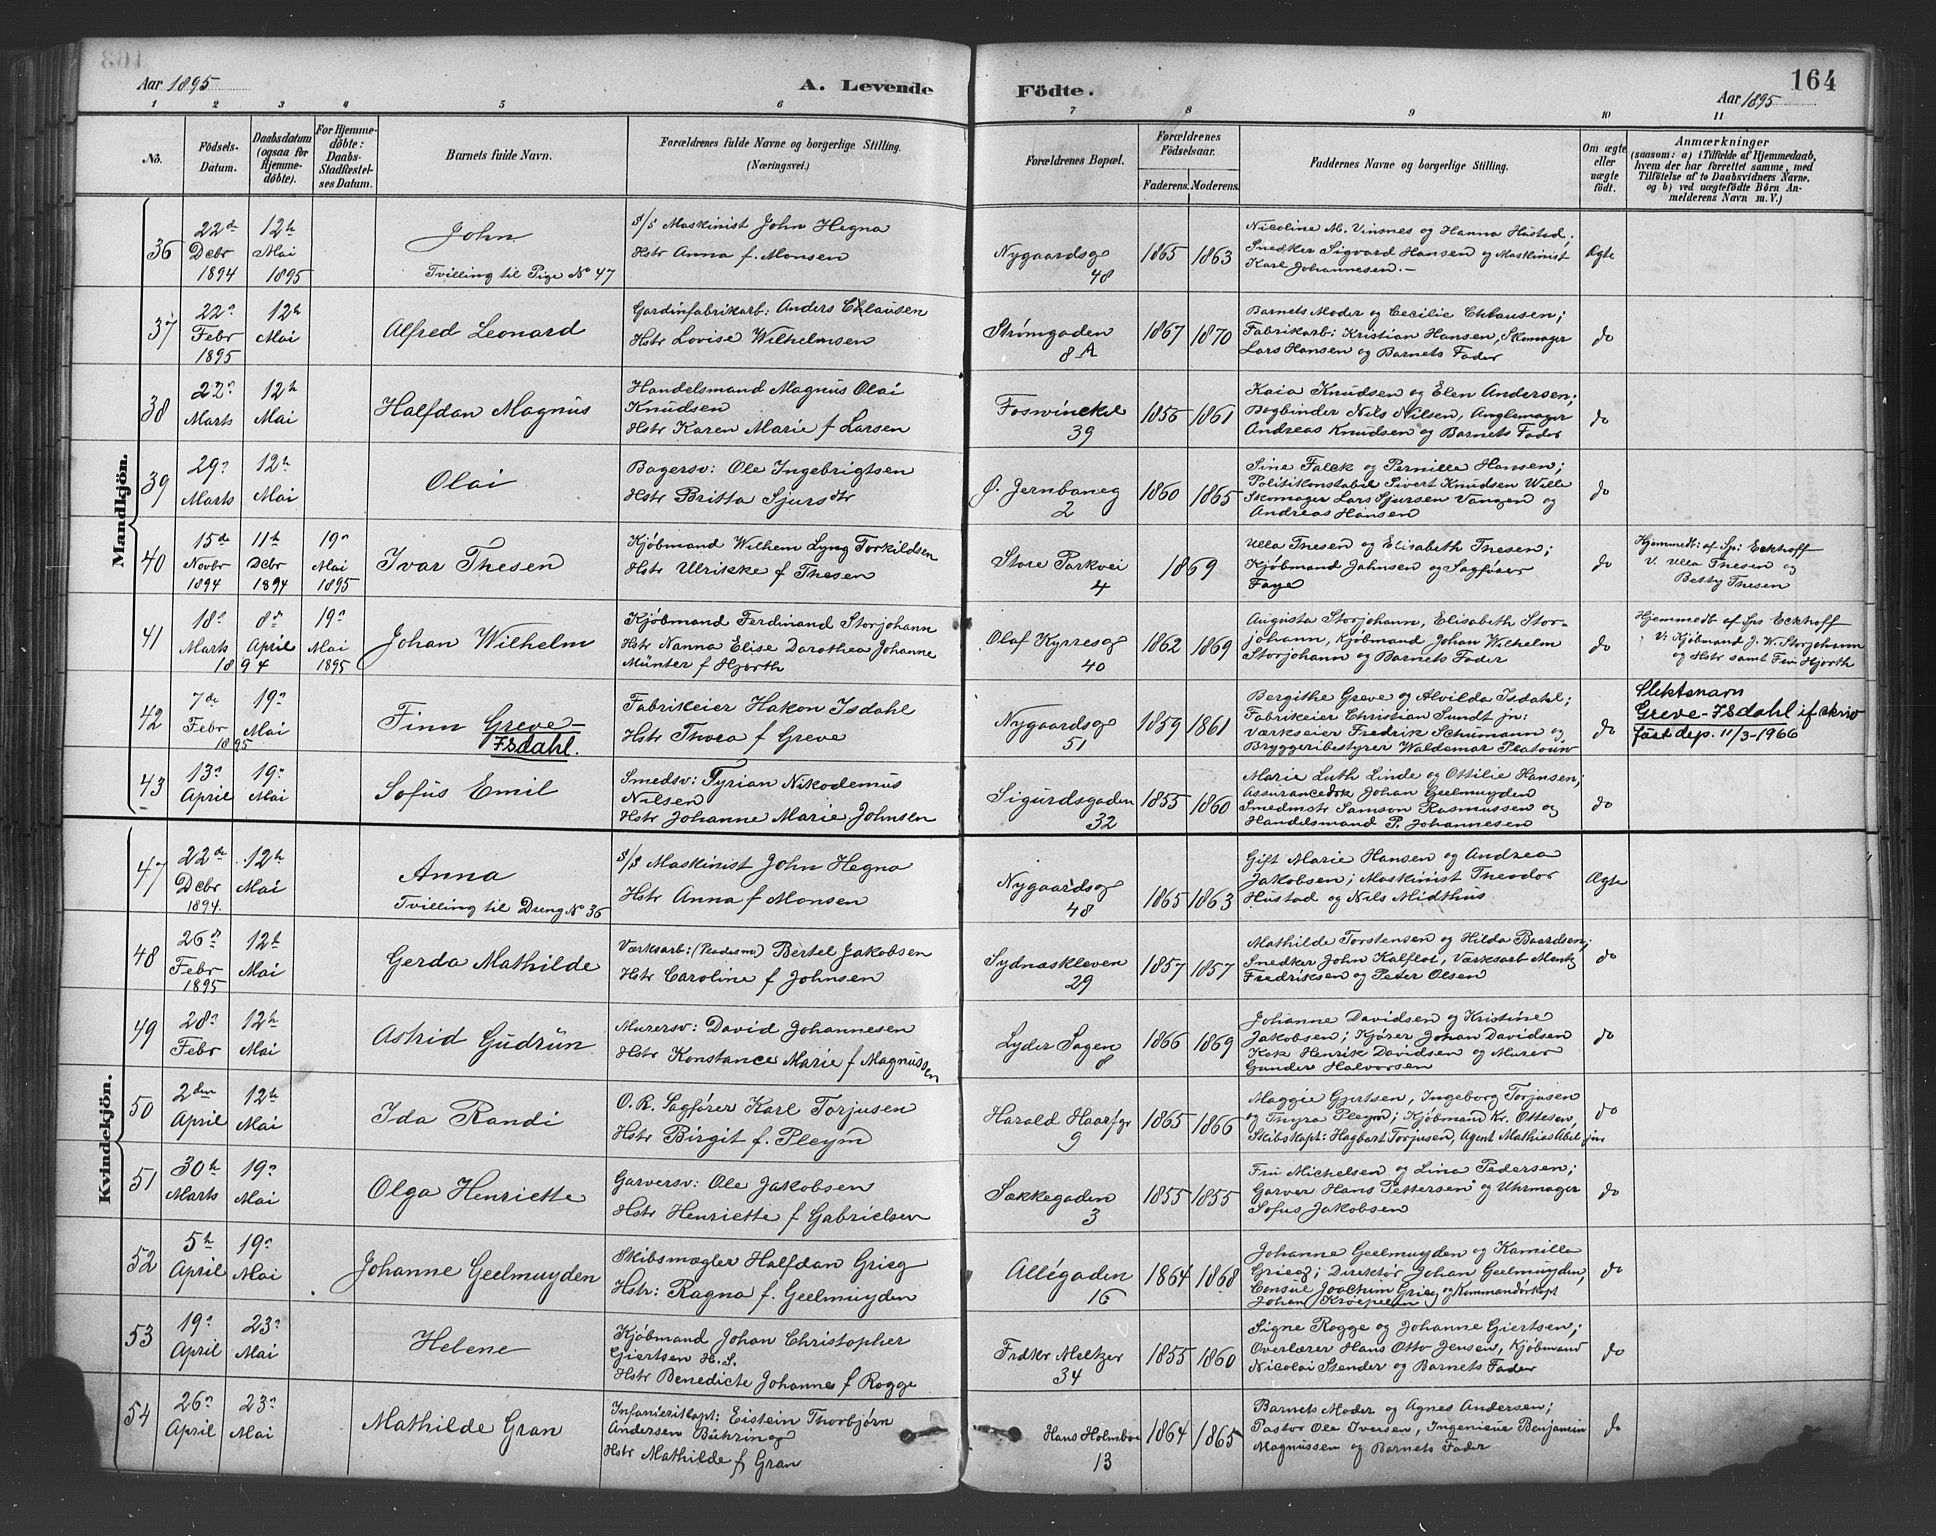 164
Aar 1895
A. Levende Födte.
Aar 1895
1 2 3 4 5 6 7 8 9 10 11
No.
Födsels-
Datum.
Daabsdatum
(ogsaa for
Hjemme-
döbte).
For Hjemme-
döbte:
Daabs-
Stadfæstel-
ses Datum.
Barnets fulde Navn.
Forældrenes fulde Navne og borgerlige Stilling.
(Næringsvei.)
Forældrenes Bopæl.
Forældrenes
Födselsaar.
Faderens. Moderens.
Faddernes Navne og borgerlige Stilling.
Om ægte
eller
uægte
födt.
Anmærkninger
(saasom: a) i Tilfælde af Hjemmedaab,
hvem der har forrettet samme, med
Tilföielse af to Daabsvidners Navne,
og b) ved uægtefödte Börn An-
melderens Navn m. V.)
Mandkjön.
36
22de
Dcbr
1894
12te
Mai
1895
John
Tvilling til Pige No 47
S/S Maskinist John Hegna
Hstr Anna f. Monsen
Nygaardsg
48
1865 1863
Nicoline M. Vinsnes og Hanna Hustad;
Snedker Sigvard Hansen og Maskinist
Karl Johannesen.-
Ægte
37
22n
Febr
1895
12te
Mai
Alfred Leonard
Gardinfabrikarb: Anders Chlausen
Hstr Lovise Wilhelmsen
Strømgaden
8 A
1867 1870
Barnets Moder og Cecilie Chlausen;
Fabrikarb: Kristian Hansen, Skomager
Lars Hansen og Barnets Fader
do
38
22n
Marts
12te
Mai
Halfdan Magnus
Handelsmand Magnus Olai
Knudsen
Hstr Karen Marie f Larsen
Foswinckel
39
1856 1861
Kaia Knudsen og Elen Andersen;
Bogbinder Nils Nilsen, Anglemager
Andreas Knudsen og Barnets Fader
do
39
29n
Marts
12te
Mai
Olai
Bagersv: Ole Ingebrigtsen
Hstr Britta Sjursdtr
Ø: Jernbaneg
2
1860 1865
Sine Falck og Pernille Hansen;
Politikonstabel Sivert Knudsen Wille
Skomager Lars Sjursen Vangen og
Andreas Hansen
do
40
15de
Novbr
1894
11te
Dcbr
1894
19n
Mai
1895
Ivar Thesen
Kjøbmand Wilhem Lyng Torkildsen
Hstr Ulrikke f Thesen
Store Parkvei
4
1869
Ulla Thesen og Elisabeth Thesen;
Kjøbmand Jahnsen og Sagfører
Faye
do
Hjemmedt: af Sp: Eckhoff
V. Ulla Thesen og
Betsy Thesen
41
18n
Marts
8n
April
1894
19n
Mai
1895
Johan Wilhelm
Kjøbmand Ferdinand Storjohann
Hstr Nanna Elise Dorothea Johanne
Münter f Hjorth
Olaf Kyrresg
40
1862 1869
Augusta Storjohann, Elisabeth Stor-
johann, Kjøbmand Johan Wilhelm
Storjohann og Barnets Fader
do
Hjemmedt af Sps Eckhoff
V: Kjøbmand J. W. Storjohann
og Hstr samt Frü Hjorth
42
7de
Febr
1895
19n
Mai
Finn Greve-
Isdahl.
Fabrikeier Hakon Isdahl
Hstr Thora f Greve
Nygaardsg
51
1859 1861
Bergithe Greve og Alvilda Isdahl;
Fabrikeier Christian Sundt jn:
Værkseier Fredrik Schumann og
Bryggeribestyrer Waldemar Platouw
do
Slektsnavn
Greve-Isdahl if. skriv
just dep. 11/3-1966
43
13n
April
19n
Mai
Sofus Emil
Smedsv: Tyrian Nikodemus
Nilsen
Hstr Johanne Marie Johnsen
Sigurdsgaden
32
1855 1860
Marie Luth Linde og Ottilie Hansen;
Assurancedok Johan Geelmuyden
Smedmstr Samson Rasmussen og
Handelsmand P. Johannesen
do
Kvindekjön.
47
22de
Dcbr
1894.
12te
Mai
Anna
Tvilling til Dreng No 36
S/S Maskinist John Hegna
Hstr Anna f Monsen
Nygaardsg
48
1865 1863
Gift Marie Hansen og Andrea
Jakobsen; Maskinist Theodor
Hustad og Nils Midthus
Ægte
48
26n
Febr
1895
12te
Mai
Gerda Mathilde
Værksarb: (Pladesm) Bertel Jakobsen
Hstr Caroline f Johnsen
Sydnæskleven
29
1857 1857
Mathilde Torstensen og Hilda Baardsen;
Snedker John Kalflot, Værksarb Mentz
Fredriksen og Peter Olsen
do
49
28n
Febr
12te
Mai
Astrid Gudrun
Murersv: David Johannesen
Hstr Konstance Marie f Magnussen
Lyder Sagen
8
1866 1869
Johanne Davidsen og Kristine
Jakobsen; Kjører Johan Davidsen
Kok Henrik Davidsen og Murer
Gunder Halvorsen
do
50
2den
April
12te
Mai
Ida Randi
O. R. Sagfører Karl Torjusen
Hstr Birgit f. Pleym
Harald Haarfgr
9
1865 1866
Maggie Gjertsen, Ingeborg Torjusen
og Thyra Pleym; Kjøbmand Kr. Ottesen,
Skibskapt: Hagbart Torjusen, Agent Mathias Abel jun
do
51
30te
Marts
19n
Mai
Olga Henriette
Garversv: Ole Jakobsen
Hstr Henriette f Gabrielsen
Sækkegaden
3
1855 1855
Fru Michelsen og Lina Pedersen;
Garver Hans Pettersen og Uhrmager
Sofus Jakobsen
do
52
5te
April
19n
Mai
Johanne Geelmuyden
Skibsmægler Halfdan Grieg
Hstr: Ragna f. Geelmuyden
Allégaden
16
1864 1868
Johanne Geelmuyden og Kamilla
Grieg; Direktør Johan Geelmuyden,
Consul Joachim Grieg og Kommandørkapt
Johan Kröepelin
do
53
19n
April
23n
Mai
Helene
Kjøbmand Johan Christopher
Giertsen H. S.
Hstr Benedicte Johannes f Rogge
Frdkr Meltzer
34
1855 1860
Signe Rogge og Johanne Giertsen;
Overlærer Hans Otto Jensen, Kjøbmand
Nicolai Stender og Barnets Fader
do
54
26n
April
23n
Mai
Mathilde Gran
Infanterikapt: Eistein Thorbjørn
Andersen Bühring
Hstr Mathilde f Gran
Hans Holmboe
13
1864 1865
Barnets Moder og Agnes Andersen;
Pastor Ole Iversen, Ingeniør Benjamin
Magnussen og Barnets Fader
do